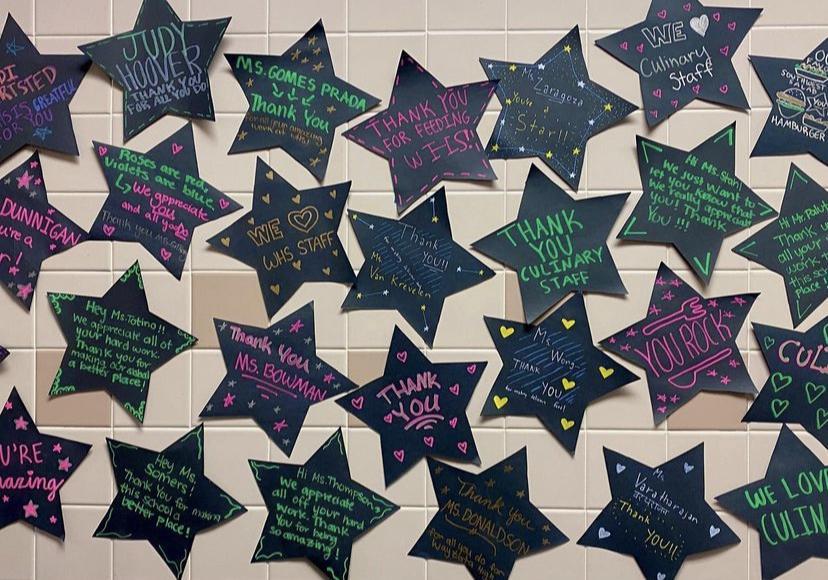 GRATEFUL
FOR YOU
JUDY
HOOVER
THANK YOU
FOR ALL YOU DO!
MS. GOMES PRADA
Thank You
for all your amazing
THANK YOU
FOR FEEDING
WHS!!
Ms.
Zaragoza
You're a
Star!!
WE
Culinary
Staff
HAMBURGER
DUNNIGAN
You're a
Roses are red,
Violets are blue,
We appreciate
you
and all you do
Thank you
WE
WHS STAFF
Thank
You!!
Ms.
Van Krevelen
THANK
YOU
CULINARY
STAFF
Hi Ms. Stahl
We just want to
let you know that
we really appreciate
you! Thank
You!!!
Thank you
all your
work
this s
place
Hey Ms. Totino!!
we appreciate all of
your hard work.
Thank you for
making our school
a better place!
Thank You
MS. BOWMAN
THANK
YOU
Ms.
Wong-
THANK
YOU
YOU ROCK
CUL
U'RE
mazing
Hey Ms.
Somers!
Thank You for making
this school a
better place!
Hi Ms. Thompson,
We appreciate
all of your hard
work. Thank
You for being
so amazing!
Thank you
MS. DONALDSON
for all you do for
Wayzata High
Ms.
Varatharajan
Thank
YOU!!
WE LOVE
CULIN